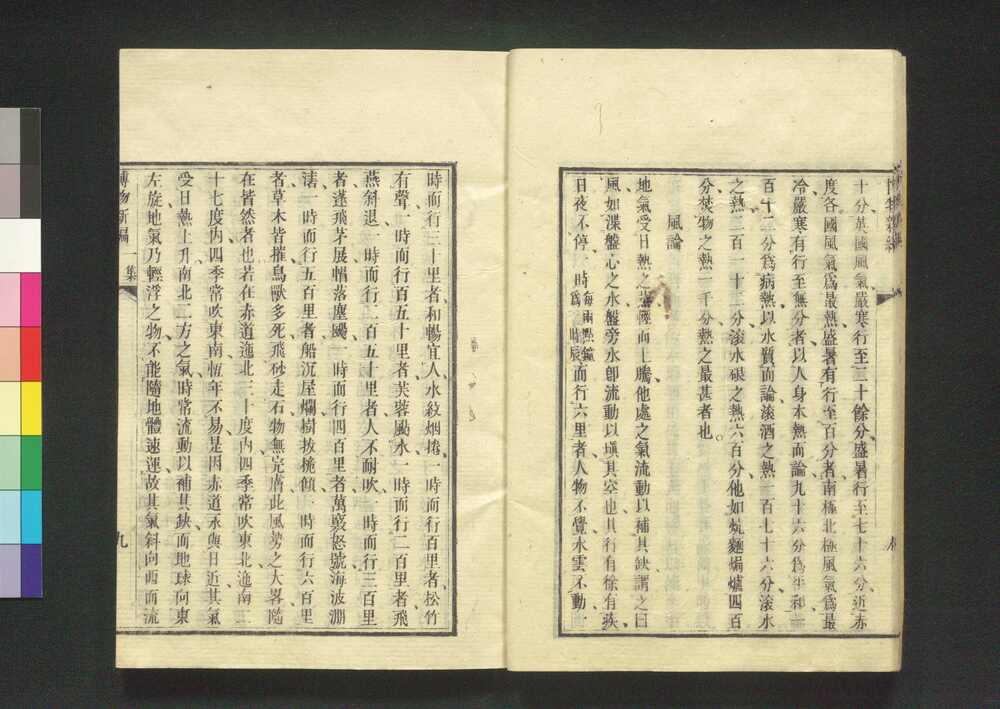 十分英國風氣嚴寒行至三十餘分盛暑行至七十六分近赤
度各國風氣爲最熱盛暑有行至百分者南極北極風氣爲最
冷嚴寒有行至無分者以人身本熱而論九十六分爲平和一
百十二分爲病熱以水質而論滾酒之熱一百七十六分滾水
之熱二百一十二分滾水銀之熱六百分他如燒麵焗爐四百
分焚物之熱一千分熱之最甚者也
風論
地氣受日熱之蒸輕而上騰他處之氣流動以補其缺謂之曰
風如渫盤心之水盤旁水卽流動以塡其空也其行有徐有疾
日夜不停一時每兩點鐘爲一時辰而行六里者人物不覺水雲不動一
時而行三十里者和暢宜人水紋烟捲一時而行百里者松竹
有聲一時而行百五十里者芙蓉颭水一時而行二百里者飛
燕斜退一時而行二百五十里者人不耐吹一時而行三百里
者蓬飛茅展帽落塵颺一時而行四百里者萬竅怒號海波淜
湱一時而行五百里者船沉屋爛樹拔桅傾一時而行六百里
者草木皆摧鳥獸多死飛砂走石物無完膚此風勢之大畧隨
在皆然者也若在赤道迤北三十度內四季常吹東北迤南二
十七度內四季常吹東南恆年不易是因赤道永與日近其氣
受日熱上升南北二方之氣時常流動以補其缺而地球向東
左旋地氣乃輕浮之物不能隨地體速運故其氣斜向西而流
博物新編 一集 九